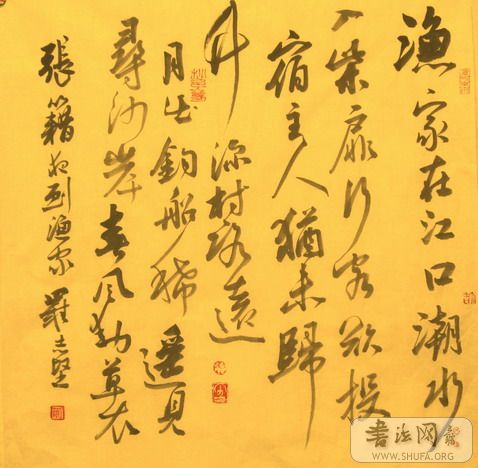 漁家在江口潮水
入柴扉行客欲投
宿主人猶未歸
竹深村路遠
月出釣船稀遥見
尋沙岸春风動草衣
張籍夜到漁家 羅志堅
書法网
WWW.SHUFA.ORG